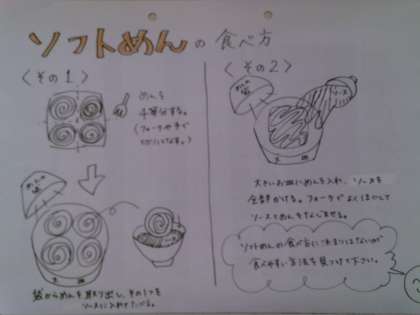 ソフトめんの食べ方
〈その1〉
めんを
4等分する。
(フォークや手で
袋からめんを取り出し、その1つを
ソースに入れてたべる。
〈その2〉
ソース
大きいお皿にめんを入れ、ソースを
全部かける。フォークでよくほかして
ソースとめんをなじませる。
ソフトめんの食べ方に決まりはないが
食べやすい方法を見つけて下さい。